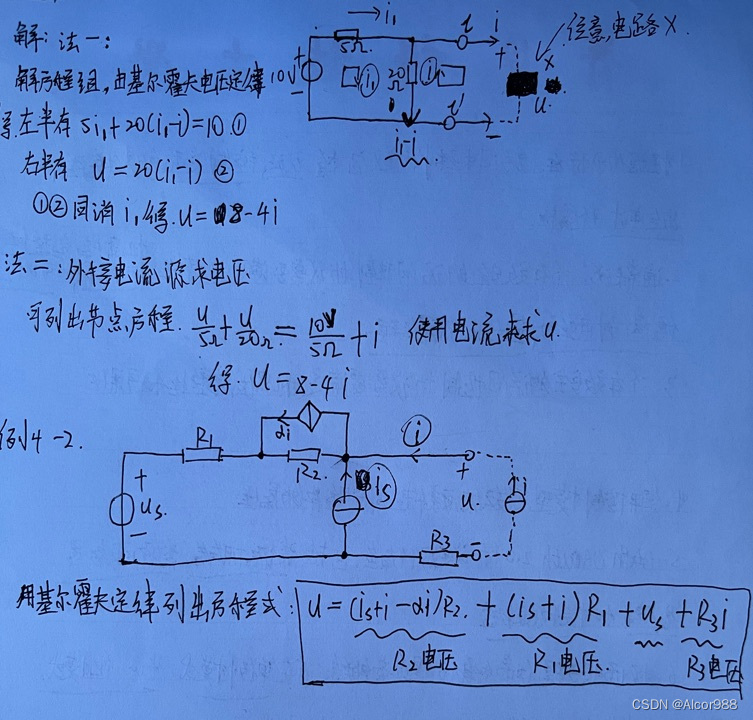 解: 法一:
解方程组, 由基尔霍夫电压定律
得.左半有 5i₁+20(i₁-i)=10.①
右半有 u=20(i₁-i) ②
①②同消 i, 得. u=8-4i
i₁
5Ω
10V
+
-
i₁
20Ω
i
i₁-i
1
i
1'
+
-
u
X
任意电路X.
法二:外接电流源求电压
可列出节点方程. u/5Ω+u/20Ω=10V/5Ω+i 使用电流来求u.
得. u=8-4i
例4-2.
R₁
αi
R₂
i
iₛ
+
uₛ
-
+
u.
-
i
R₃
用基尔霍夫定律列出方程式: u=(iₛ+i-αi)R₂.+(iₛ+i)R₁+uₛ+R₃i
R₂电压 R₁电压. R₃电压
CSDN @Alcor988